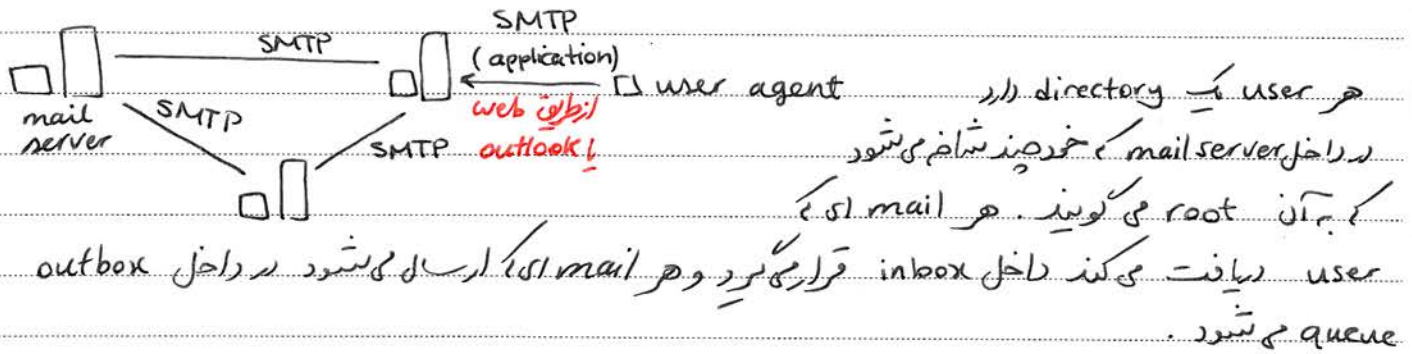 SMTP
SMTP
(application)
mail
server
SMTP
SMTP
از طریق web
یا outlook
user agent
هر user یک directory دارد
در داخل mail server که خود چند شاخه می‌شود
که به آن root می‌گویند. هر mail ای که
user دریافت می‌کند داخل inbox قرار می‌گیرد و هر mail ای که ارسال می‌شود در داخل outbox
queue می‌شود.